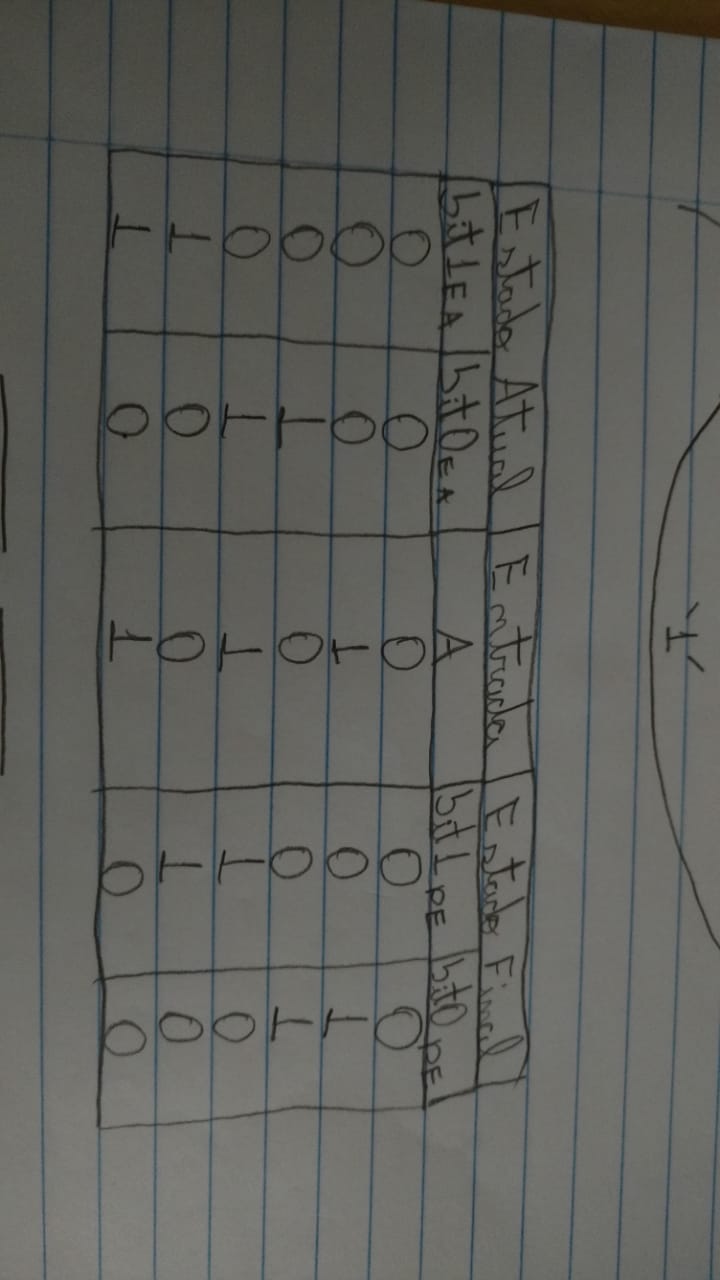 '1'
Estado Atual Entrada Estado Final
bit1EA bit0EA A bit1PE bit0PE
0 0 0 0 0
0 0 1 0 1
0 1 0 0 1
0 1 1 1 0
1 0 0 1 0
1 0 1 0 0